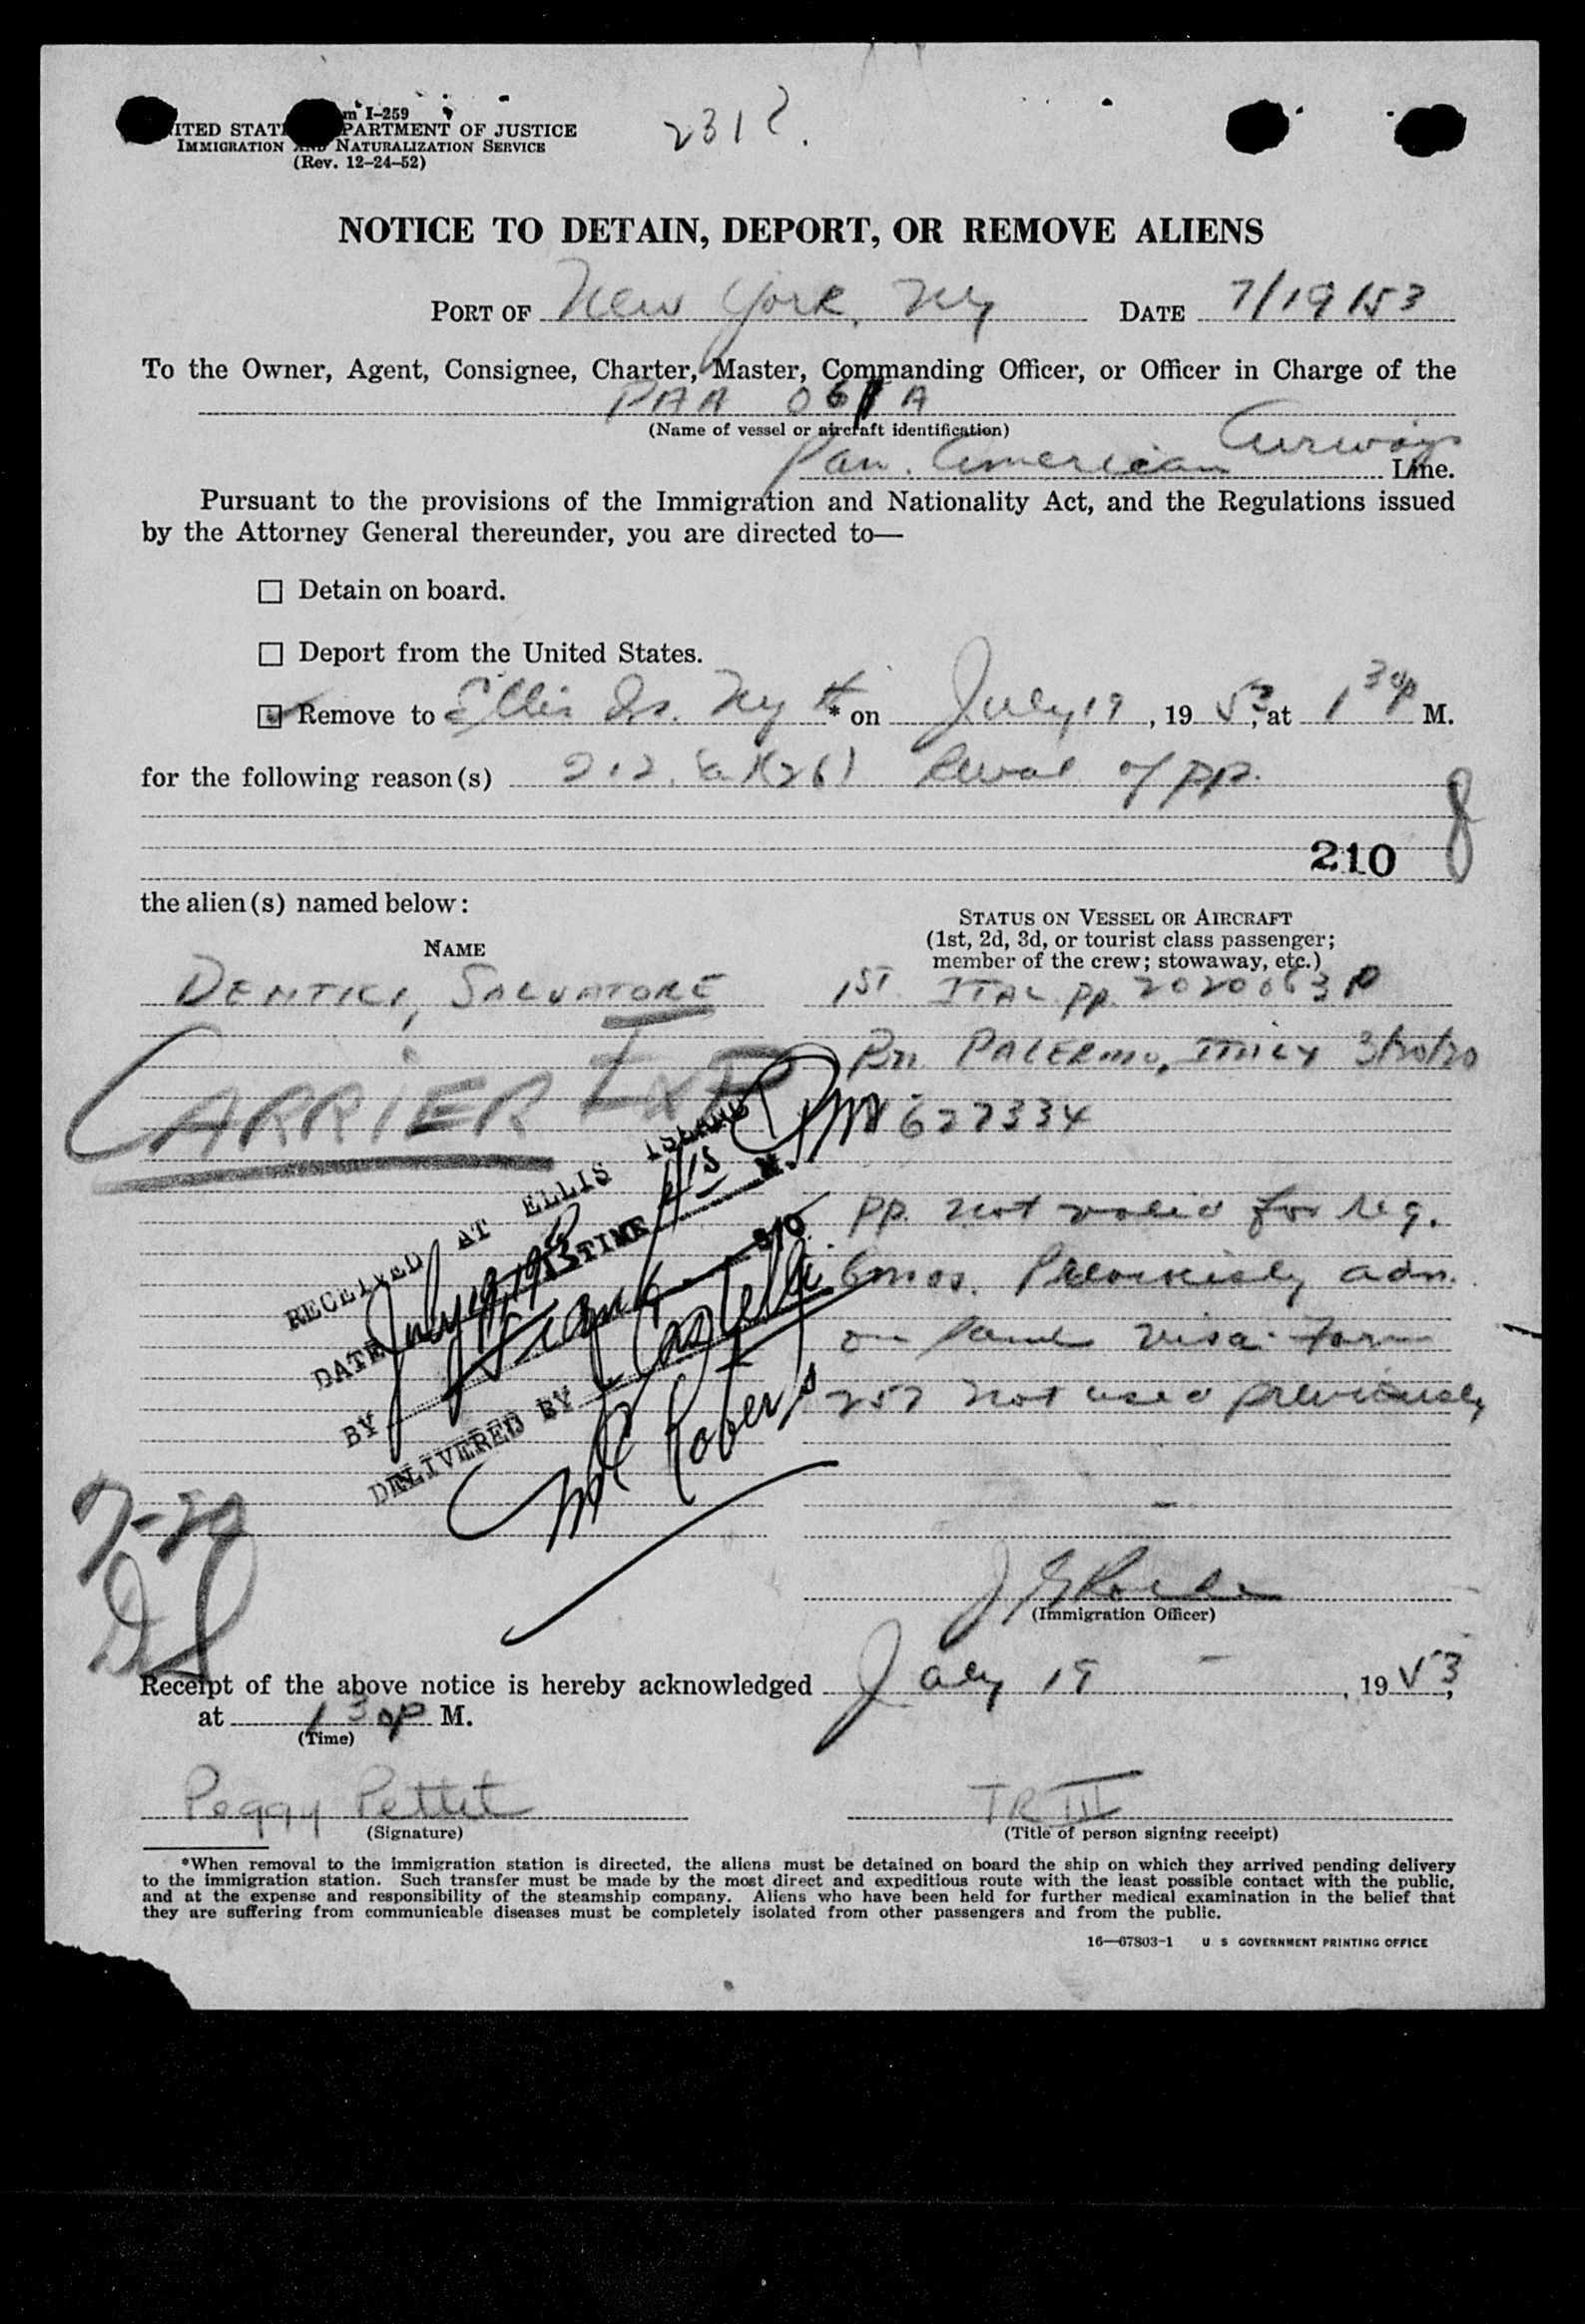 m I-259
ITED STAT PARTMENT OF JUSTICE
IMMIGRATION AND NATURALIZATION SERVICE
(Rev. 12-24-52)
231
NOTICE TO DETAIN, DEPORT, OR REMOVE ALIENS
PORT OF New York, Ny DATE 7/19/53
To the Owner, Agent, Consignee, Charter, Master, Commanding Officer, or Officer in Charge of the
PAA 061 A
(Name of vessel or aircraft identification)
Pan. American Airways Line.
Pursuant to the provisions of the Immigration and Nationality Act, and the Regulations issued
by the Attorney General thereunder, you are directed to—
Detain on board.
Deport from the United States.
Remove to Ellis Is. Ny * on July 19, 19 53, at 1 30p M.
for the following reason(s) 212 (a)(26) of pp.
210
the alien(s) named below:
STATUS ON VESSEL OR AIRCRAFT
(1st, 2d, 3d, or tourist class passenger;
member of the crew; stowaway, etc.)
NAME
DENTICI, SALVATORE 1ST ITAL pp. 2020063 P
Bn PALERMO, ITALY 3/20/20
CARRIER
V 627334
RECEIVED AT ELLIS ISLAND
DATE July 19, 1953 TIME 415 M.
BY Frank Castelli
DELIVERED BY
pp. not valid for req.
6 mos. Previously adm.
on same visa. Form
257 not used previously
7-20
(Immigration Officer)
Receipt of the above notice is hereby acknowledged July 19, 19 53,
at 1 30p M.
(Time)
Peggy Pettit TR III
(Signature) (Title of person signing receipt)
*When removal to the immigration station is directed, the aliens must be detained on board the ship on which they arrived pending delivery
to the immigration station. Such transfer must be made by the most direct and expeditious route with the least possible contact with the public,
and at the expense and responsibility of the steamship company. Aliens who have been held for further medical examination in the belief that
they are suffering from communicable diseases must be completely isolated from other passengers and from the public.
16—67803-1 U S GOVERNMENT PRINTING OFFICE